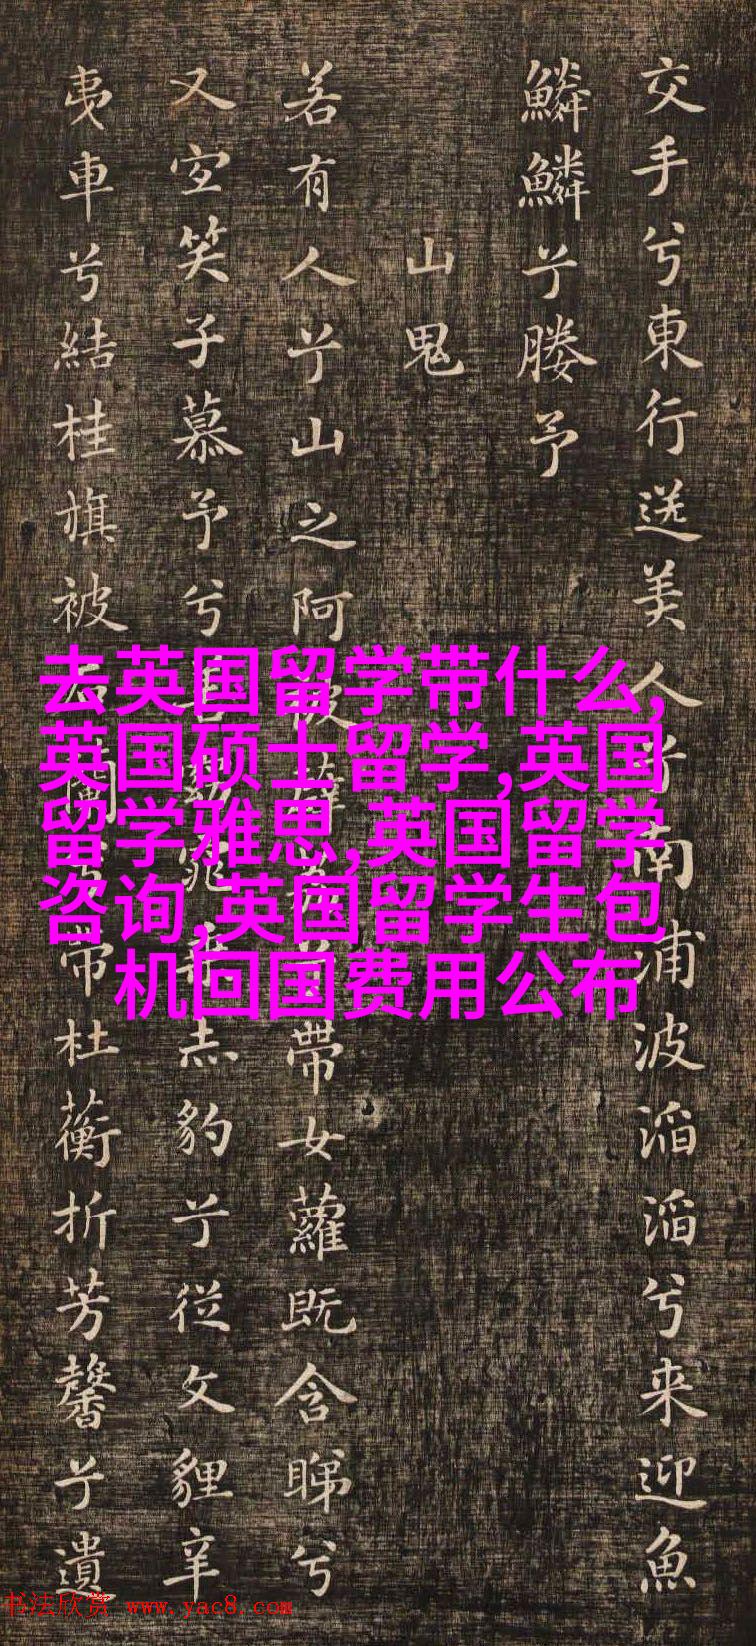 交手兮東行送美人兮南浦波滔滔兮来迎魚
鱗鱗兮媵予
山鬼
若有人兮山之阿被薜荔兮帶女蘿既含睇兮
又宜笑子慕予兮善窈窕乘赤豹兮從文貍辛
夷車兮結桂旗被石蘭兮帶杜蘅折芳馨兮遺
去英国留学带什么,
英国硕士留学,英国
留学雅思,英国留学
咨询,英国留学生包
机回国费用公布
书法欣赏 www.yac8.com